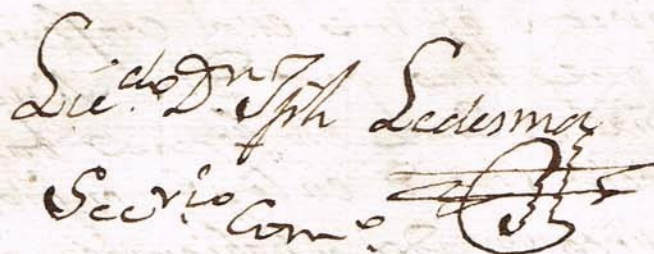 Licdo. Dn Jph Ledesma
Secrio Como.